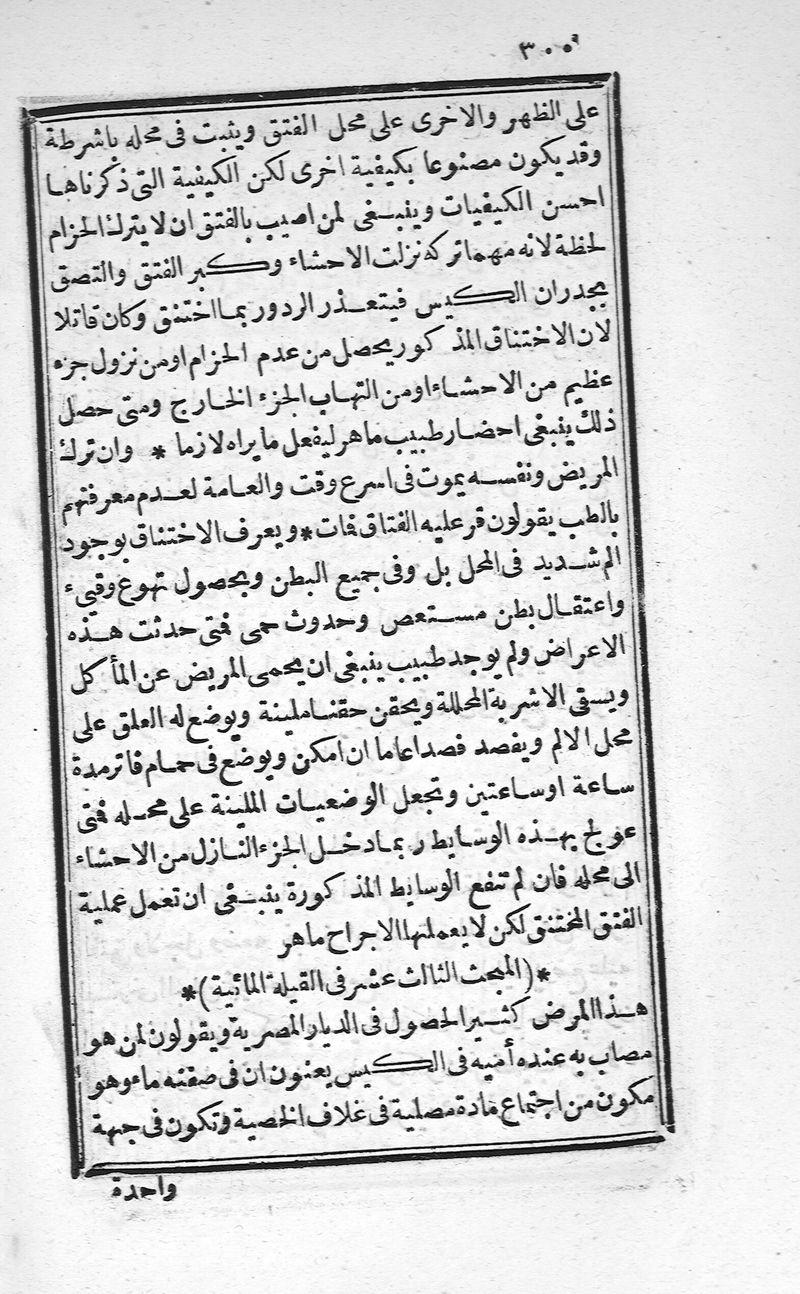 ٣٠٠
على الظهر والاخرى على محل الفتق ويثبت فى محله باشرطة
وقد يكون مصنوعا بكيفية اخرى لكن الكيفية التى ذكرناها
احسن الكيفيات وينبغى لمن اصيب بالفتق ان لا يترك الحزام
لحظة لانه مهما تركه نزلت الاحشاء وكبر الفتق والتصق
بجدران الكيس فيتعذر الرد وربما اختنق وكان قاتلا
لان الاختناق المذكور يحصل من عدم الحزام او من نزول جزء
عظيم من الاحشاء او من التهاب الجزء الخارج ومتى حصل
ذلك ينبغى احضار طبيب ماهر ليفعل ما يراه لازما * وان ترك
المريض ونفسه يموت فى اسرع وقت والعامة لعدم معرفتهم
بالطب يقولون قر عليه الفتاق فات * ويعرف الاختناق بوجود
الم شديد فى المحل بل وفى جميع البطن وبحصول تهوع وقىء
واعتقال بطن مستعص وحدوث حمى فتى حدثت هذه
الاعراض ولم يوجد طبيب ينبغى ان يحمى المريض عن المأكل
ويسقى الاشربة المحللة ويحقن حقنا ملينة ويوضع له العلق على
محل الالم ويفصد فصدا عاما ان امكن ويوضع فى حمام فاتر مدة
ساعة او ساعتين وتجعل الوضعيات الملينة على محله فتى
عولج بهذه الوسايط ربما دخل الجزء النازل من الاحشاء
الى محله فان لم تنفع الوسايط المذكورة ينبغى ان تعمل عملية
الفتق المختنق لكن لا يعملها الا جراح ماهر
*(المبحث الثالث عشر فى القيلة المائية)*
هذا المرض كثير الحصول فى الديار المصرية ويقولون لمن هو
مصاب به عنده أميه فى الكيس يعنون ان فى صفنه ماء وهو
مكون من اجتماع مادة مصلية فى غلاف الخصية وتكون فى جهة
واحدة